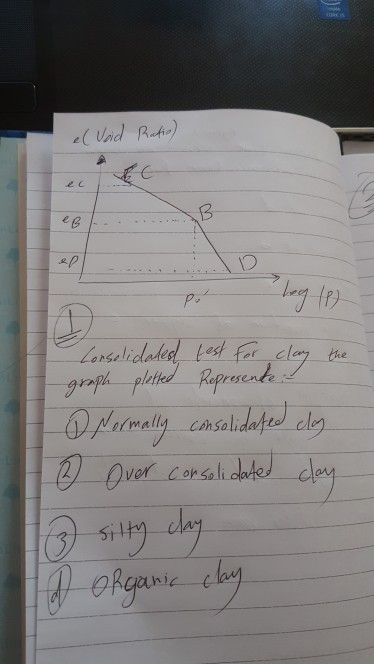 e (Void Ratio)
ec
C
eB
B
eP
D
Po'
Log (P)
1
Consolidated test For clay the
graph plotted Represente:-
1 Normally consolidated clay
2 Over consolidated clay
3 Silty clay
d ORganic clay